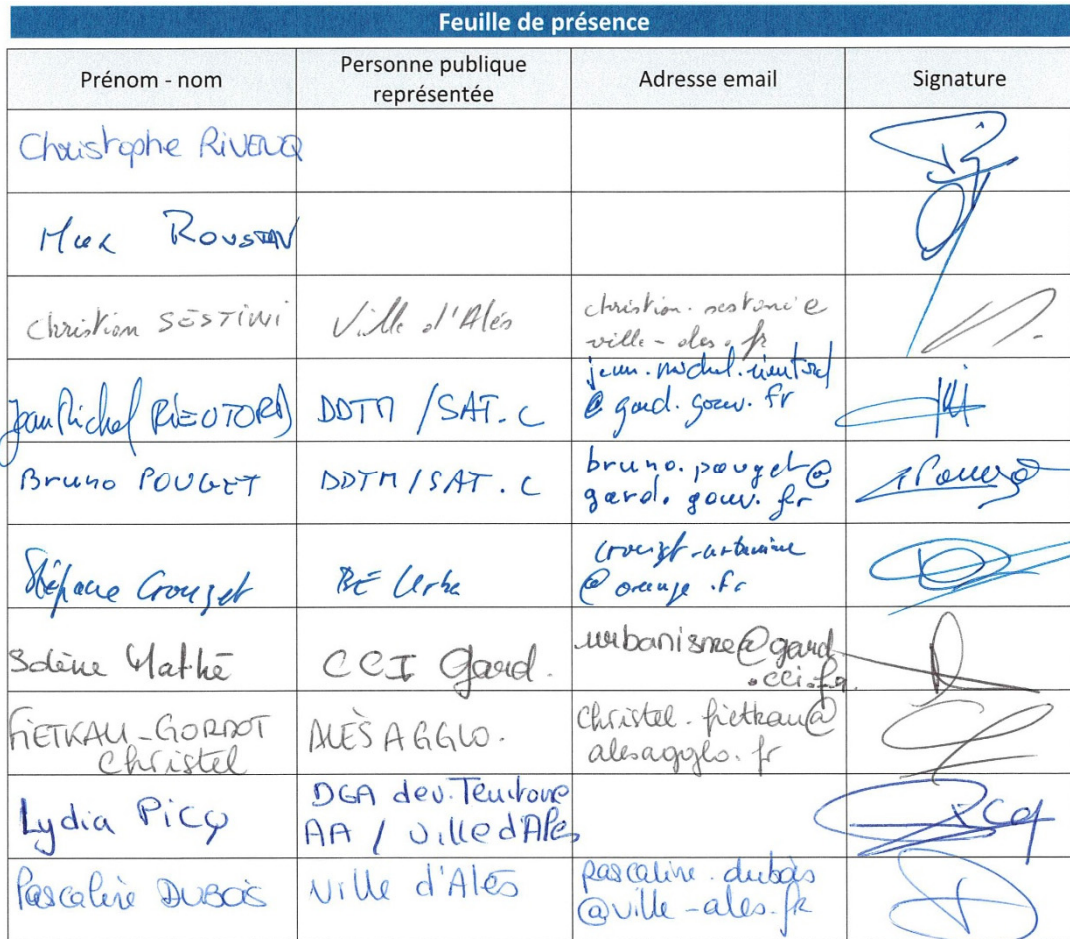 Feuille de présence
Prénom - nom
Personne publique
représentée
Adresse email
Signature
Christophe RIVENQ
Max ROUSTAN
Christian SESTINI
Ville d'Alès
christian.sestini@
ville-ales.fr
Jean Michel RIEUTORD
DDTM / SAT.C
jean.michel.rieutord
@gard.gouv.fr
Bruno POUGET
DDTM / SAT.C
bruno.pouget@
gard.gouv.fr
Stéphane Crouzet
BE Urba
@orange.fr
Solène Mathé
CCI Gard.
urbanisme@gard
.cci.fr
FIETKAU-GORDOT
Christel
ALÈS AGGLO.
Christel.fietkau@
alesagglo.fr
Lydia PICQ
DGA dev. Territoire
AA / Ville d'Alès
Pascaline DUBOIS
Ville d'Alès
pascaline.dubois
@ville-ales.fr